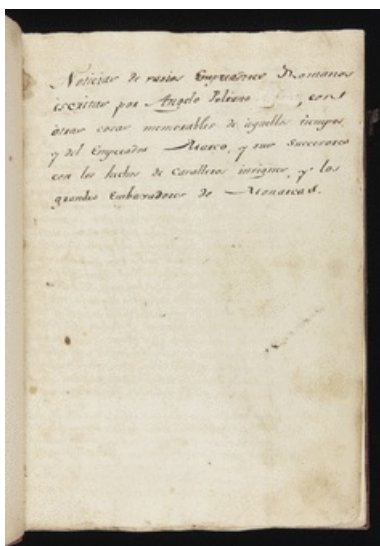 Noticias de varios Emperadores Romanos
escritas por Angelo Poliano , con
otras cosas memorables de aquellos tiempos,
y del Emperador Marco, y sus Successores
con los hechos de Caralleros insignes, y los
grandes Embaxadores de Monarcas.